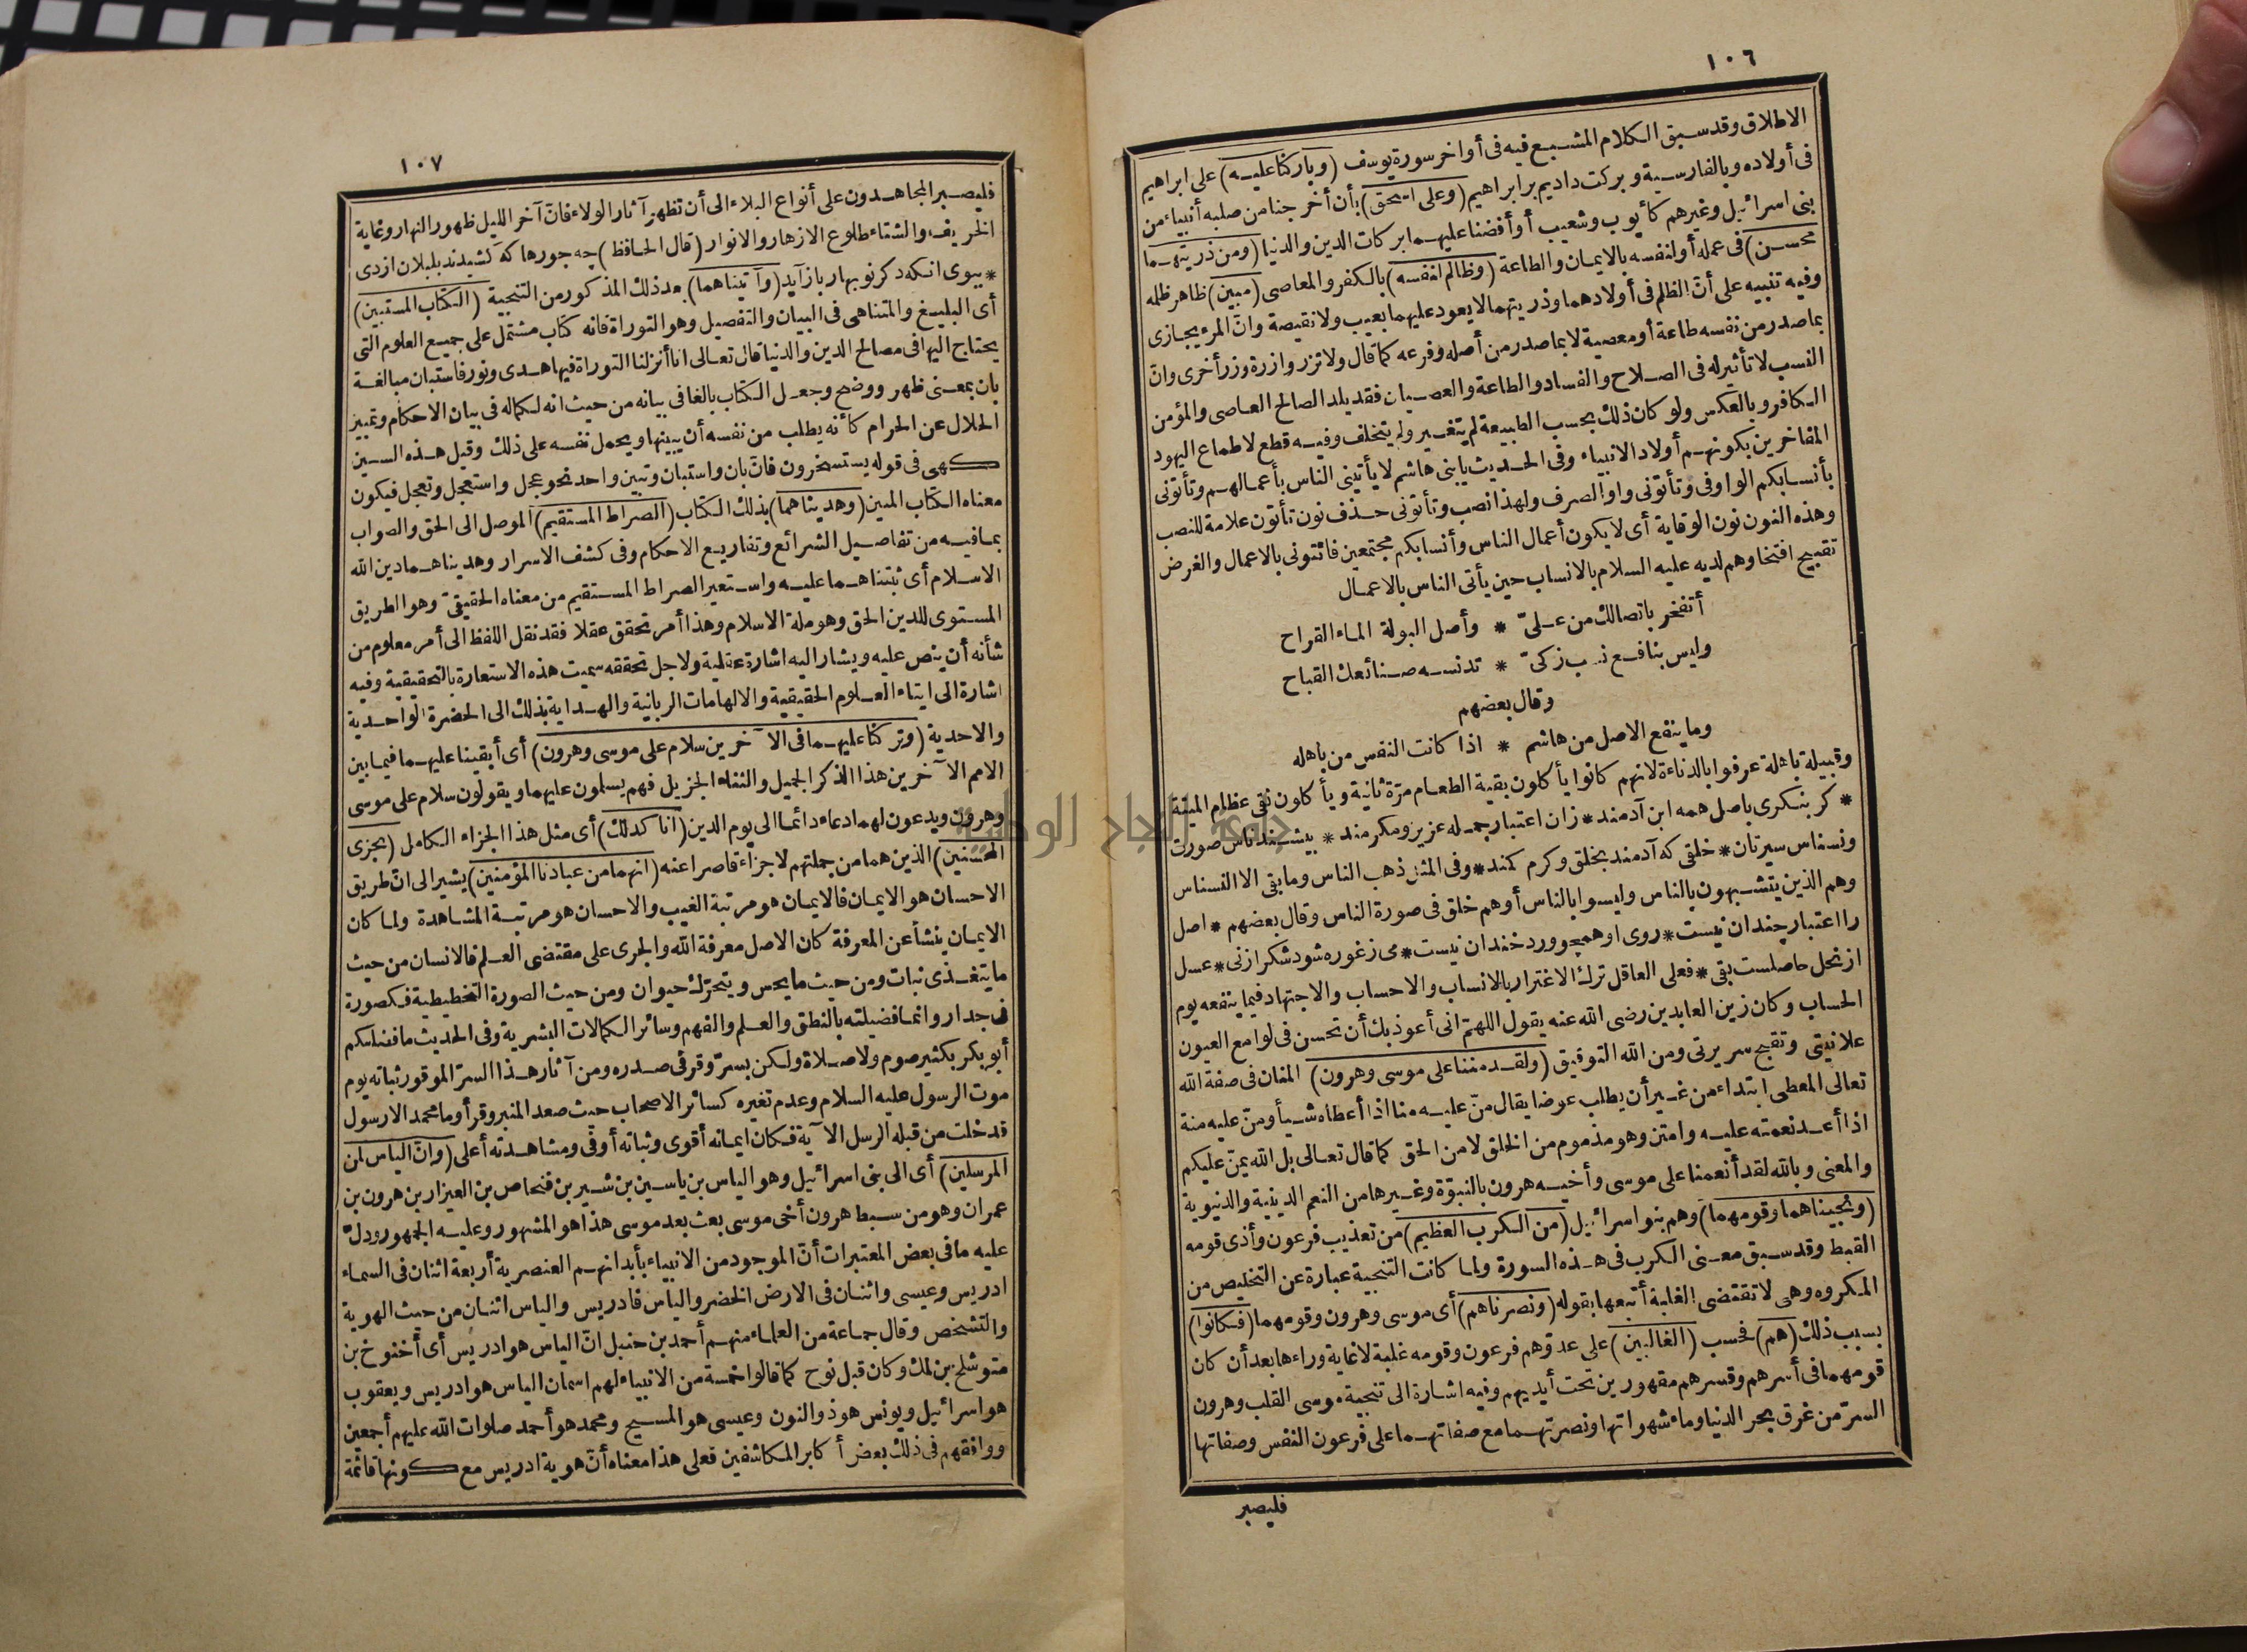 ١٠٦
الاطلاق وقد سبق الكلام المشبع فيه فى أواخر سورة يوسف (وباركنا عليه) على ابراهيم
فى أولاده وبالفارسية وبركت داديم بر ابراهيم (وعلى اسحق) بأن أخرجنا من صلبه أنبياء من
بنى اسرائيل وغيرهم كأيوب وشعيب أو أفضنا عليهما بركات الدين والدنيا (ومن ذريتهما
محسن) فى عمله أو لنفسه بالايمان والطاعة (وظالم لنفسه) بالكفر والمعاصى (مبين) ظاهر ظلمه
وفيه تنبيه على أنّ الظلم فى أولادهما وذريتهما لا يعود عليهما بعيب ولا نقيصة وانّ المرء يجازى
بما صدر من نفسه طاعة أو معصية لا بما صدر من أصله وفرعه كما قال ولا تزر وازرة وزر أخرى وانّ
النسب لا تأثير له فى الصلاح والفساد والطاعة والعصيان فقد يلد الصالح العاصى والمؤمن
الكافر وبالعكس ولو كان ذلك بحسب الطبيعة لم يتغير ولم يتخلف وفيه قطع لاطماع اليهود
المفاخرين بكونهم أولاد الانبياء وفى الحديث يا بنى هاشم لا يأتينى الناس بأعمالهم وتأتونى
بأنسابكم الواو فى وتأتونى واو الصرف ولهذا نصب وتأتونى حذف نون تأتون علامة للنصب
وهذه النون نون الوقاية أى لا يكون أعمال الناس وأنسابكم مجتمعين فائتونى بالاعمال والغرض
تقبيح افتخارهم لديه عليه السلام بالانساب حين يأتى الناس بالاعمال
أتفخر باتصالك من علىّ * وأصل البولة الماء القراح
وليس بنافع نسب زكىّ * تدنسه صنائعك القباح
وقال بعضهم
وما ينفع الاصل من هاشم * اذا كانت النفس من باهله
وقبيلة باهلة عرفوا بالدناءة لانهم كانوا يأكلون بقية الطعام مرّة ثانية ويأكلون نقى عظام الميتة
* كر بنكرى باصل همه ابن آدمند * زان اعتبار جمله عزيز ومكرمند * بيشند ناس صورت
ونسناس سيرتان * خلقى كه آدمند بخلق وكرم كمند * وفى المثل ذهب الناس وما بقى الا النسناس
وهم الذين يتشبهون بالناس وليسوا بالناس أو هم خلق فى صورة الناس وقال بعضهم * اصل
را اعتبار چندان نيست * روى او همچو ورد خندان نيست * مى زغوره شود شكر ازنى * عسل
از نحل حاصلست بقى * فعلى العاقل ترك الاغترار بالانساب والاحساب والاجتهاد فيما ينفعه يوم
الحساب وكان زين العابدين رضى الله عنه يقول اللهمّ انى أعوذ بك أن تحسن فى لوامع العيون
علانيتى وتقبح سريرتى ومن الله التوفيق (ولقد مننا على موسى وهرون) المنان فى صفة الله
تعالى المعطى ابتداء من غير أن يطلب عوضا يقال منّ عليه منا اذا أعطاه شيأ ومنّ عليه منة
اذا أعد نعمته عليه وامتن وهو مذموم من الخلق لا من الحق كما قال تعالى بل الله يمنّ عليكم
والمعنى وبالله لقد أنعمنا على موسى وأخيه هرون بالنبوّة وغيرها من النعم الدينية والدنيوية
(ونجيناهما وقومهما) وهم بنو اسرائيل (من الكرب العظيم) من تعذيب فرعون وأذى قومه
القبط وقد سبق معنى الكرب فى هذه السورة ولما كانت التنجية عبارة عن التخليص من
المكروه وهى لا تقتضى الغلبة أتبعها بقوله (ونصرناهم) أى موسى وهرون وقومهما (فكانوا)
بسبب ذلك (هم) فحسب (الغالبين) على عدوّهم فرعون وقومه غلبة لا غاية وراءها بعد أن كان
قومهما فى أسرهم وقسرهم مقهورين تحت أيديهم وفيه اشارة الى تنجية موسى القلب وهرون
السرّ من غرق بحر الدنيا وماء شهواتها ونصرتهما مع صفاتهما على فرعون النفس وصفاتها
فليصبر
١٠٧
فليصبر المجاهدون على أنواع البلاء الى أن تظهر آثار الولاء فانّ آخر الليل ظهور النهار وغاية
الخريف والشتاء طلوع الازهار والانوار (قال الحافظ) چه جورها كه كشيدند بلبلان ازدى
* ببوى انكه دكر نوبهار باز آيد (وآتيناهما) بعد ذلك المذكور من التنجية (الكتاب المستبين)
أى البليغ والمتناهى فى البيان والتفصيل وهو التوراة فانه كتاب مشتمل على جميع العلوم التى
يحتاج اليها فى مصالح الدين والدنيا قال تعالى انا أنزلنا التوراة فيها هدى ونور فاستبان مبالغة
بان بمعنى ظهر ووضح وجعل الكتاب بالغا فى بيانه من حيث انه لكماله فى بيان الاحكام وتمييز
الحلال عن الحرام كأنه يطلب من نفسه أن يبينها ويحمل نفسه على ذلك وقيل هذه السين
كهى فى قوله يستسخرون فانّ بان واستبان وتبين واحد نحو عجل واستعجل وتعجل فيكون
معناه الكتاب المبين (وهديناهما) بذلك الكتاب (الصراط المستقيم) الموصل الى الحق والصواب
بما فيه من تفاصيل الشرائع وتفاريع الاحكام وفى كشف الاسرار وهديناهما دين الله
الاسلام أى ثبتناهما عليه واستعير الصراط المستقيم من معناه الحقيقىّ وهو الطريق
المستوى للدين الحق وهو ملة الاسلام وهذا أمر تحقق عقلا فقد نقل اللفظ الى أمر معلوم من
شأنه أن ينص عليه ويشار اليه اشارة عقلية ولاجل تحققه سميت هذه الاستعارة بالتحقيقية وفيه
اشارة الى ايتاء العلوم الحقيقية والالهامات الربانية والهداية بذلك الى الحضرة الواحدية
والاحدية (وتركنا عليهما فى الآخرين سلام على موسى وهرون) أى أبقينا عليهما فيما بين
الامم الآخرين هذا الذكر الجميل والثناء الجزيل فهم يسلمون عليهما ويقولون سلام على موسى
وهرون ويدعون لهما دعاء دائما الى يوم الدين (انا كذلك) أى مثل هذا الجزاء الكامل (نجزى
المحسنين) الذين هما من جملتهم لا جزاء قاصرا عنه (انهما من عبادنا المؤمنين) يشير الى انّ طريق
الاحسان هو الايمان فالايمان هو مرتبة الغيب والاحسان هو مرتبة المشاهدة ولما كان
الايمان ينشأ عن المعرفة كان الاصل معرفة الله والجرى على مقتضى العلم فالانسان من حيث
ما يتغذى نبات ومن حيث ما يحس ويتحرّك حيوان ومن حيث الصورة التخطيطية فكصورة
فى جدار وانما فضيلته بالنطق والعلم والفهم وسائر الكمالات البشرية وفى الحديث ما فضلكم
أبو بكر بكثير صوم ولا صلاة ولكن بسرّ وقر فى صدره ومن آثار هذا السرّ الموقور ثباته يوم
موت الرسول عليه السلام وعدم تغيره كسائر الاصحاب حيث صعد المنبر وقرأ وما محمد الا رسول
قد خلت من قبله الرسل الآية فكان ايمانه أقوى وثباته أوفى ومشاهدته أعلى (وانّ الياس لمن
المرسلين) أى الى بنى اسرائيل وهو الياس بن ياسين بن شير بن فنحاص بن العيزار بن هرون بن
عمران وهو من سبط هرون أخى موسى بعث بعد موسى هذا هو المشهور وعليه الجمهور ودلّ
عليه ما فى بعض المعتبرات أنّ الموجود من الانبياء بأبدانهم العنصرية أربعة اثنان فى السماء
ادريس وعيسى واثنان فى الارض الخضر والياس فادريس والياس اثنان من حيث الهوية
والتشخص وقال جماعة من العلماء منهم أحمد بن حنبل انّ الياس هو ادريس أى أخنوخ بن
متوشلخ بن لمك وكان قبل نوح كما قالوا خمسة من الانبياء لهم اسمان الياس هو ادريس ويعقوب
هو اسرائيل ويونس هو ذو النون وعيسى هو المسيح ومحمد هو أحمد صلوات الله عليهم أجمعين
ووافقهم فى ذلك بعض أكابر المكاشفين فعلى هذا معناه أنّ هوية ادريس مع كونها قائمة
جامعة النجاح الوطنية